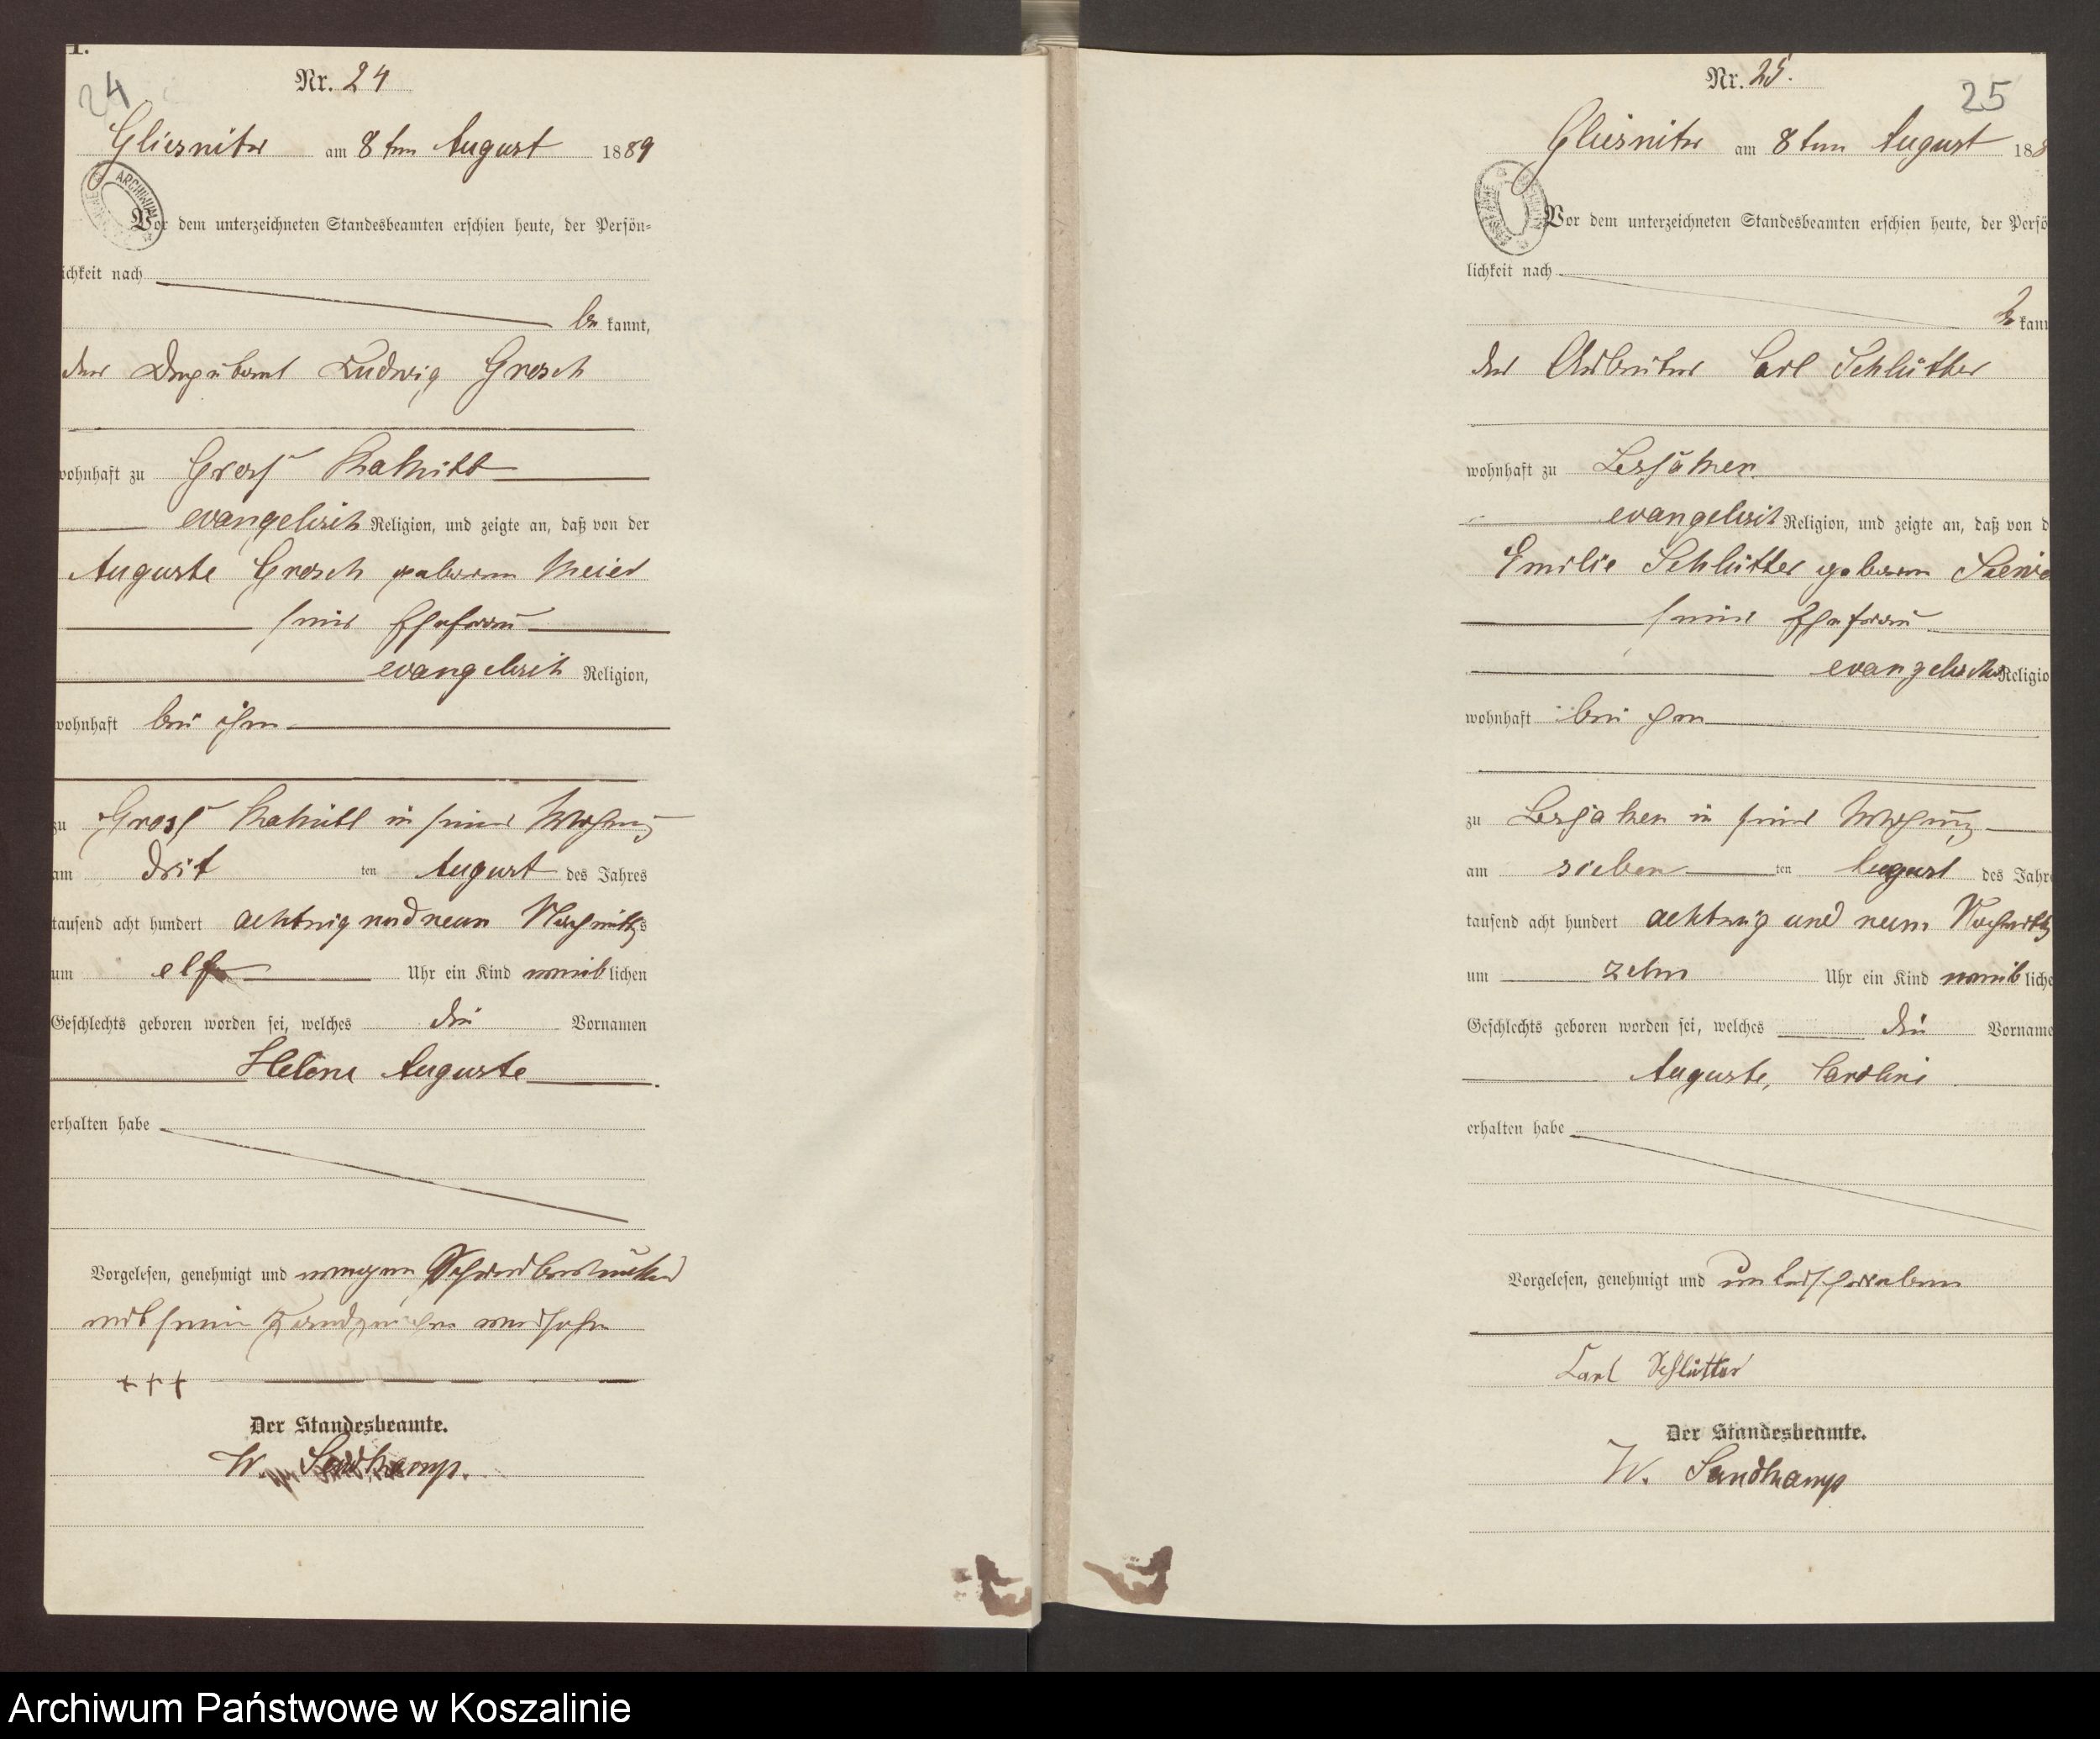 24
Nr. 24
Gliesnitz am 8ten August 1889
ARCHIWUM
Vor dem unterzeichneten Standesbeamten erschien heute, der Persön-
ichkeit nach
be kannt,
der Ludwig Grosch
wohnhaft zu Gross
evangelisch Religion, und zeigte an, daß von der
Auguste Grosch geborene Meier
seiner Ehefrau
evangelisch Religion,
wohnhaft bei ihm
zu Gross in seiner Wohnung
am drit ten August des Jahres
tausend acht hundert achtzig und neun Nachmittags
um elf Uhr ein Kind weiblichen
Geschlechts geboren worden sei, welches die Vornamen
Helene Auguste
erhalten habe
Vorgelesen, genehmigt und wegen
mit seinem Handzeichen versehen
+++
Der Standesbeamte.
W. Sandkamp.
Nr. 25.
25
Gliesnitz am 8ten August 188
Vor dem unterzeichneten Standesbeamten erschien heute, der Persö
lichkeit nach
be kann
der Arbeiter Carl Schlütter
wohnhaft zu Lessaken
evangelisch Religion, und zeigte an, daß von d
Emilie Schlütter geborene
seiner Ehefrau
evangelisch Religio
wohnhaft bei ihm
zu Lessaken in seiner Wohnung
am sieben ten August des Jahre
tausend acht hundert achtzig und neun Nachmittags
um zehn Uhr ein Kind weib liche
Geschlechts geboren worden sei, welches die Vorname
Auguste, Caroline
erhalten habe
Vorgelesen, genehmigt und unterschrieben
Carl Schlütter
Der Standesbeamte.
W. Sandkamp
Archiwum Państwowe w Koszalinie